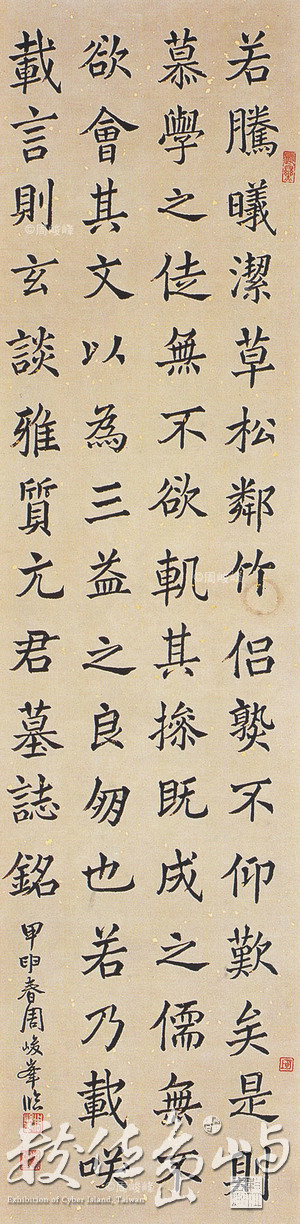 若騰曦潔草松鄰竹侶孰不仰歎矣是則
慕學之徒無不欲軌其操既成之儒無不
欲會其文以為三益之良朋也若乃載咲
載言則玄談雅質元君墓誌銘
甲申春周峻峯臨
©周峻峰
©周峻峰
©周峻峰
數位島嶼
Exhibition of Cyber Island, Taiwan